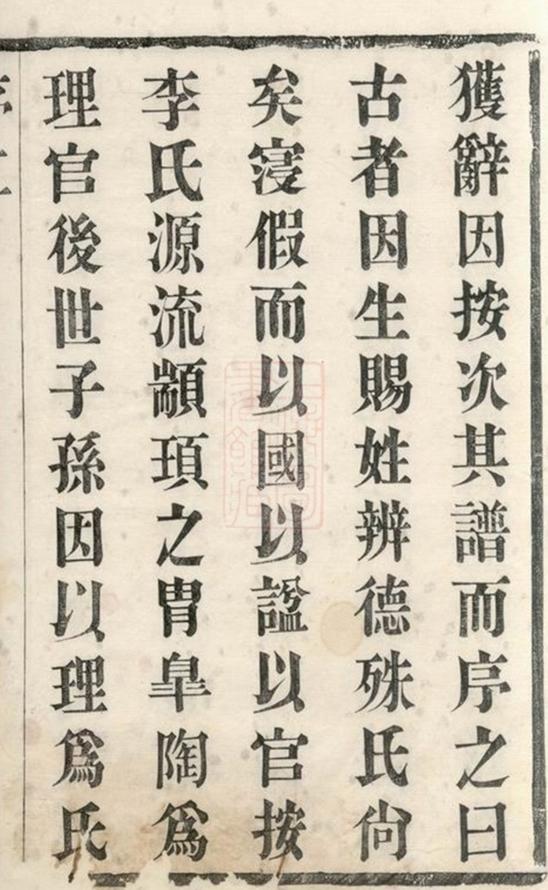 獲辭因按次其譜而序之曰
古者因生賜姓辨德殊氏尚
矣寖假而以國以諡以官按
李氏源流顓頊之胄皐陶為
理官後世子孫因以理為氏